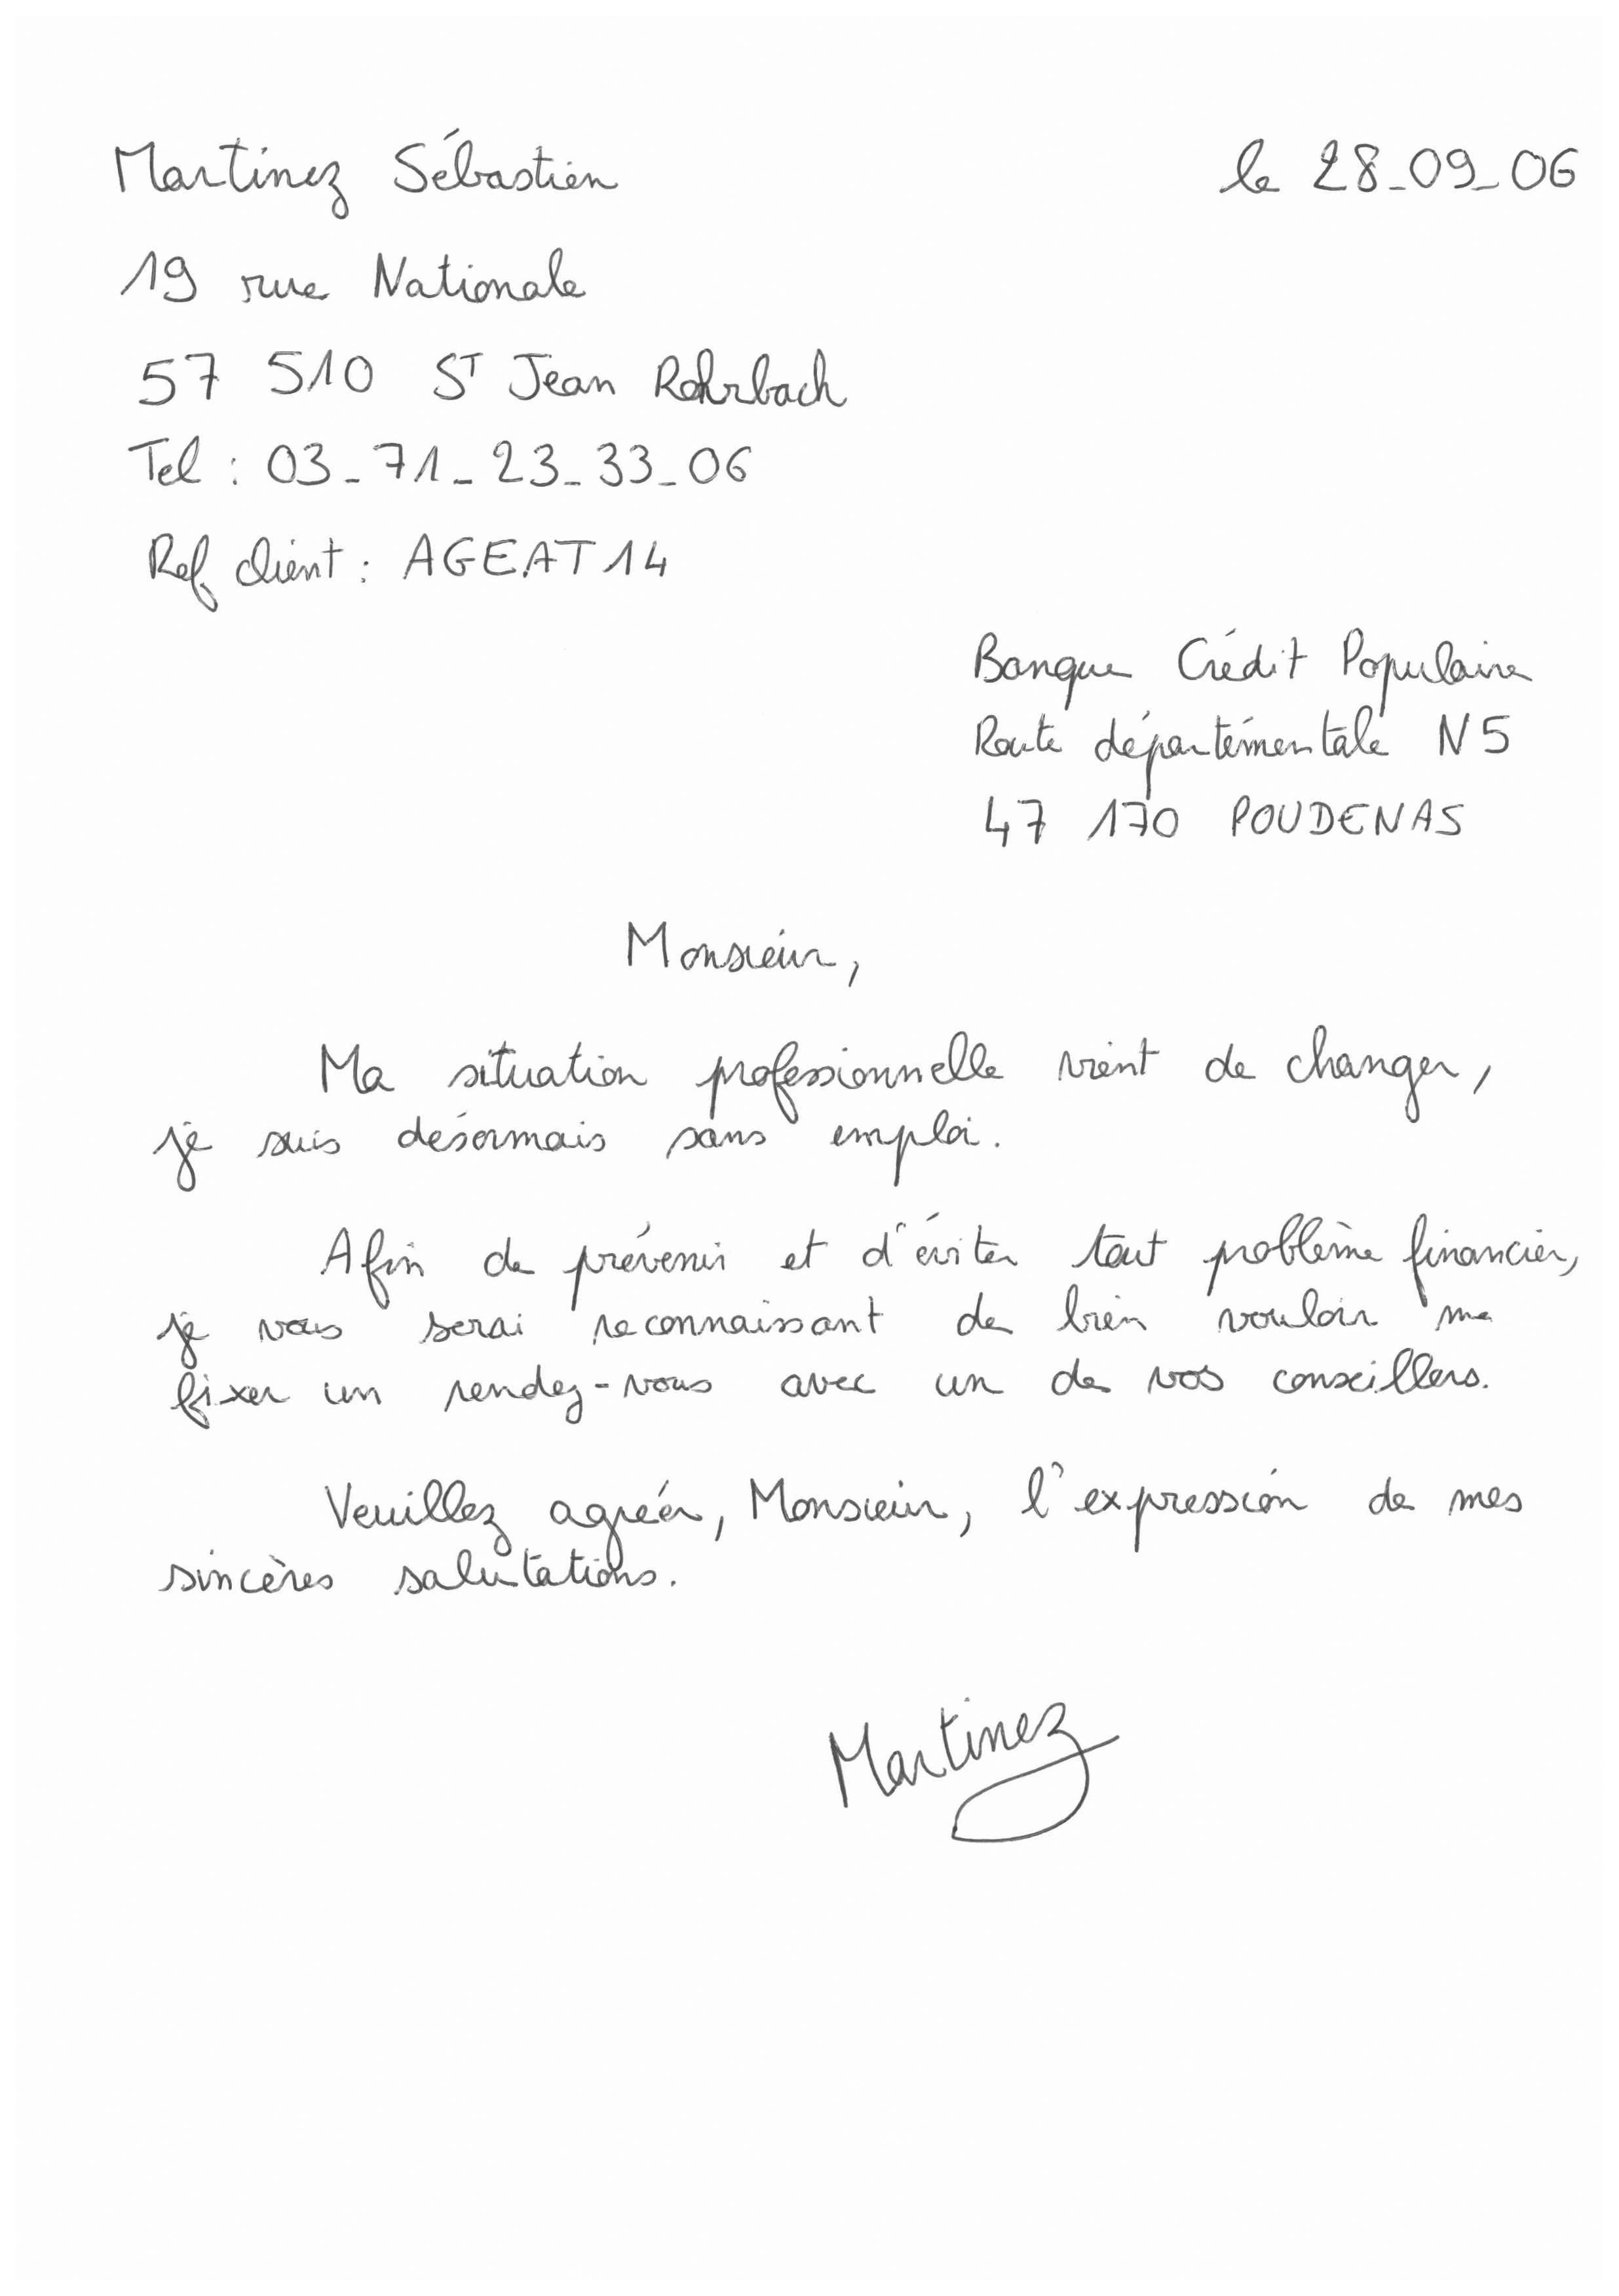 Martinez Sébastien
le 28_09_06
19 rue Nationale
57 510 ST Jean Rohrbach
Tel : 03_71_23_33_06
Ref client : AGEAT14
Banque Crédit Populaire
Route départementale N5
47 170 POUDENAS
Monsieur,
Ma situation professionnelle vient de changer,
je suis désormais sans emploi.
Afin de prévenir et d'éviter tout problème financier,
je vous serai reconnaissant de bien vouloir me
fixer un rendez-vous avec un de vos conseillers.
Veuillez agréer, Monsieur, l'expression de mes
sincères salutations.
Martinez